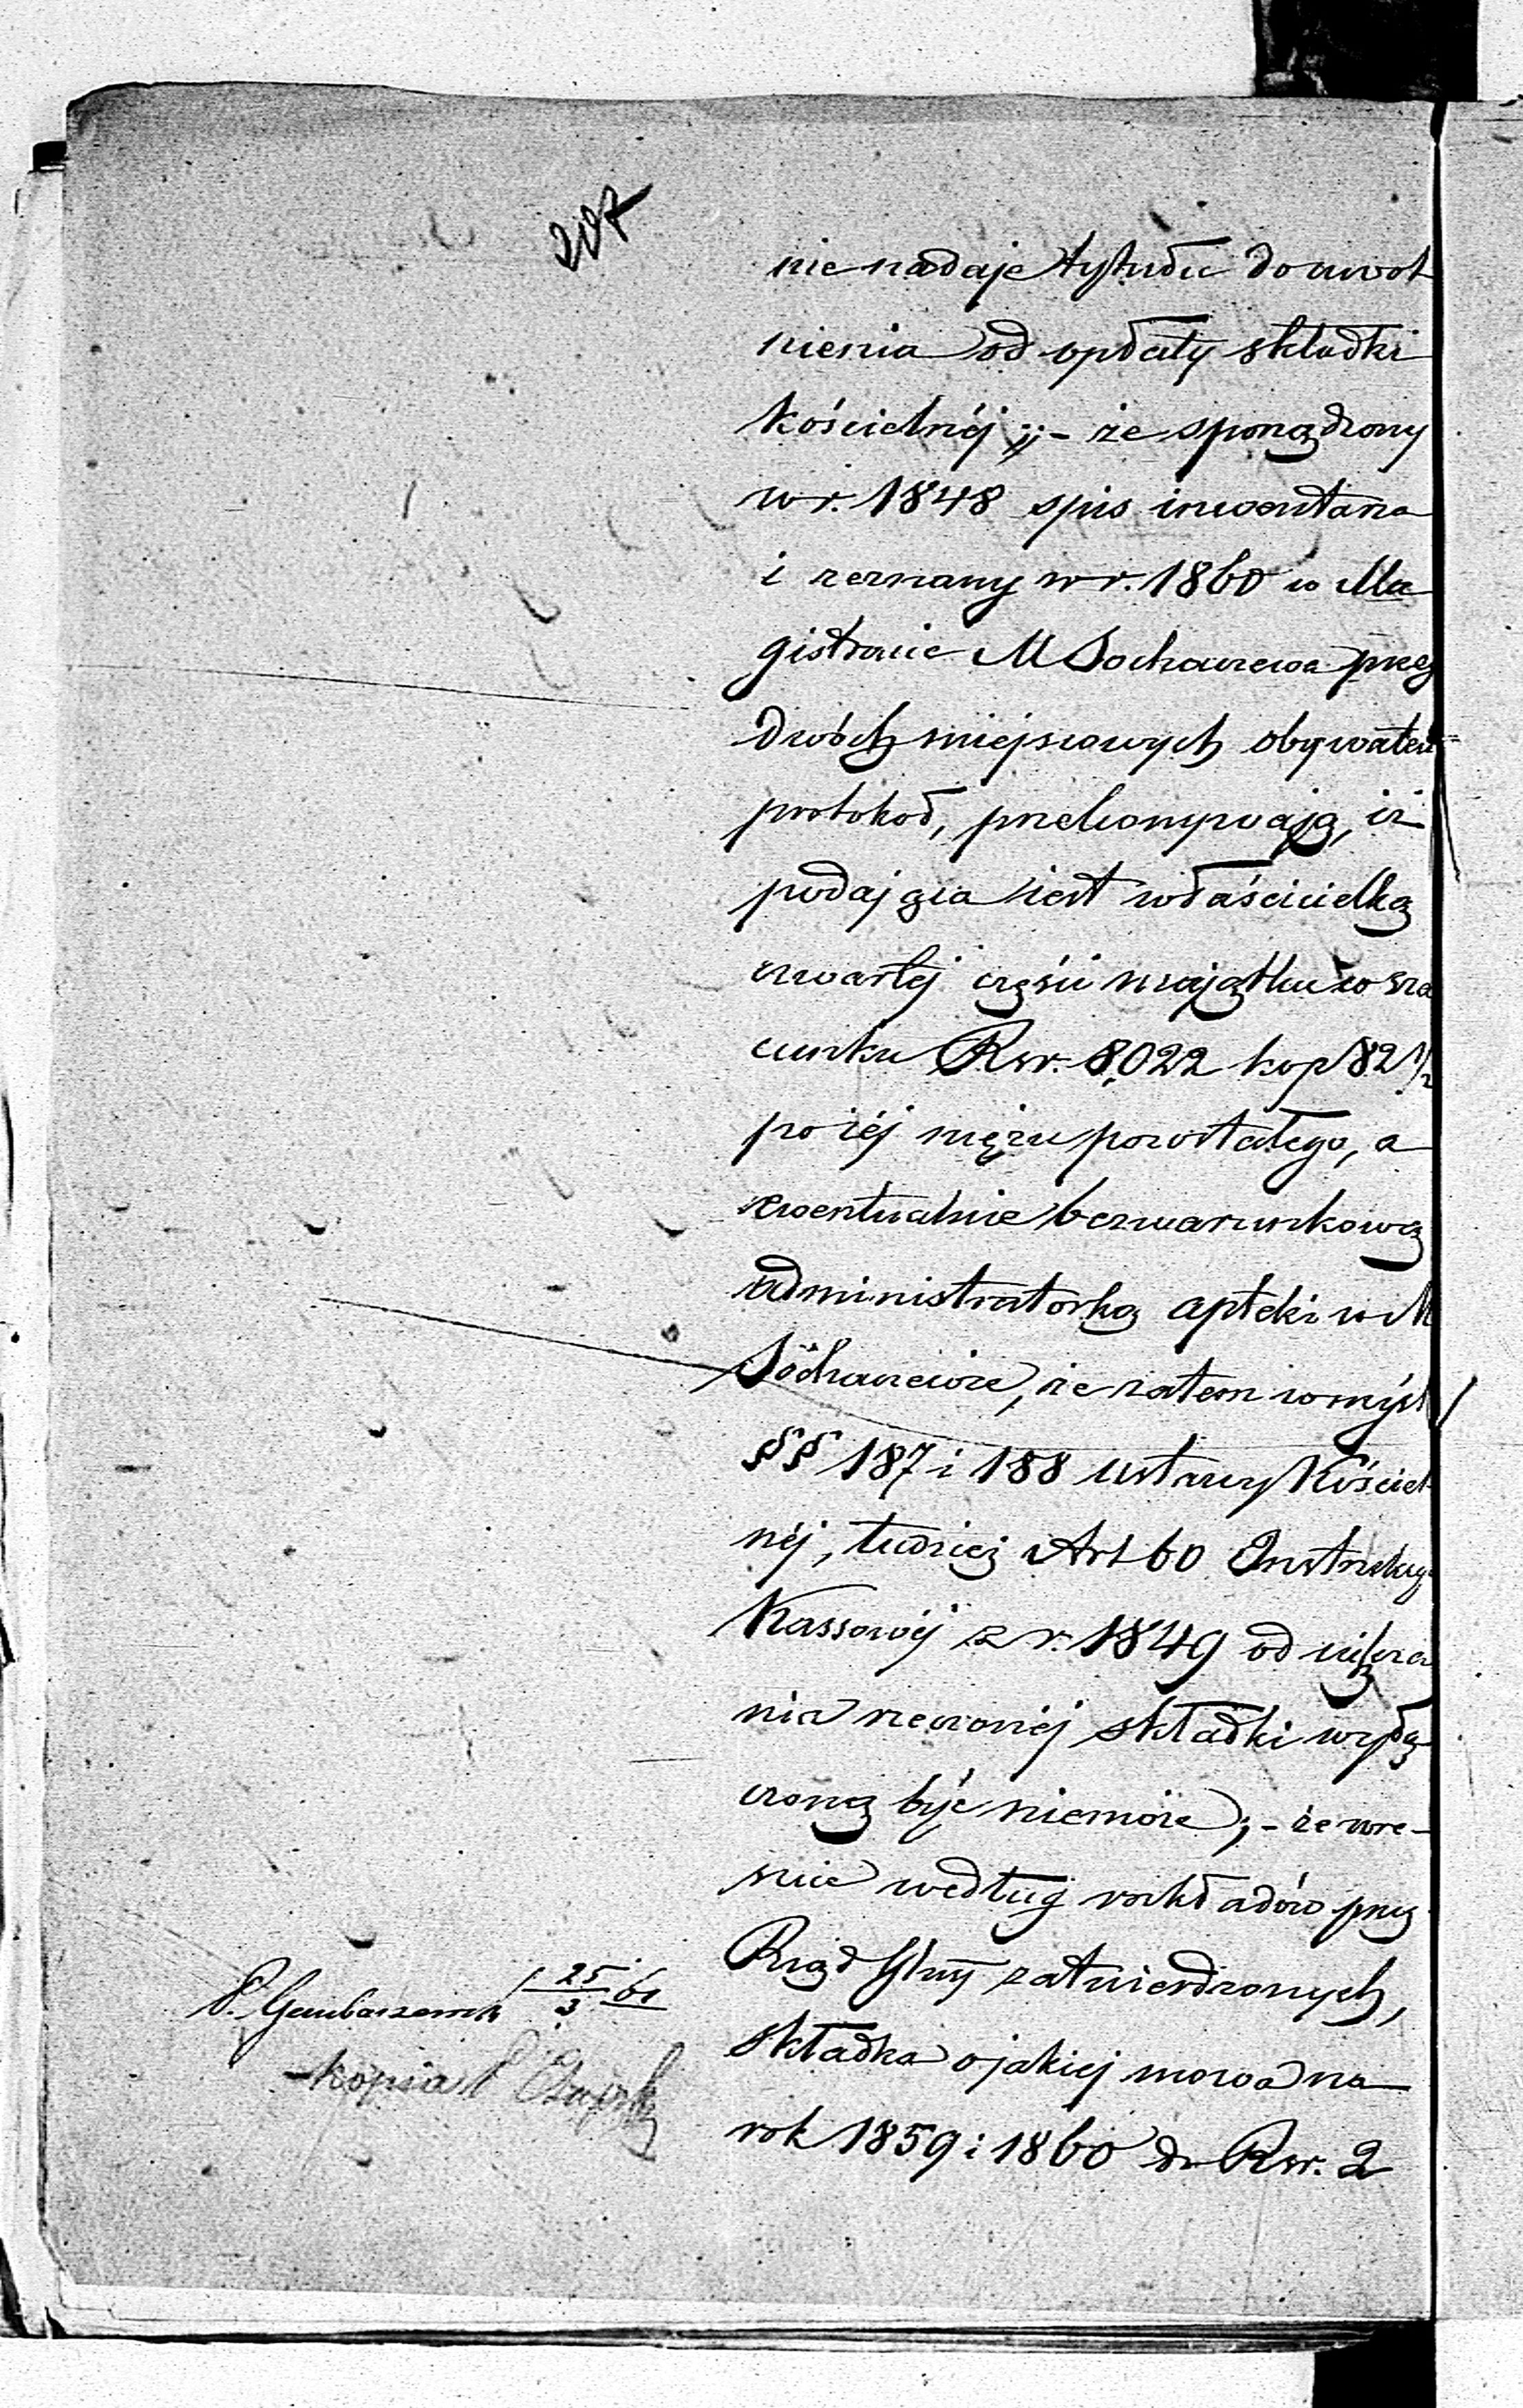 207
nie nadaje tytułu do uwol
nienia od opłaty składki
Kościelnéj ;- że sporządzony
w r. 1848 spis inwentarza
i zeznany w r. 1860 w Ma
gistracie M Sochaczewa przez
dwóch miejscowych obywateli
protokoł, przekonywają, iż
podająca iest właścicielką
czwartej części majątku w sza
cunku Rsr. 8,022 kop 82 1/2
po iéj mężu pozostałego, a
ewentualnie bezwarunkową
administratorką apteki w M
Sochaczewie, że zatem w myśl
§§ 187 i 188 ustawy Kościel
néj, tudzież Art 60 Instrukcyi
Kassowéj z r. 1849 od uiszcza
nia rzeczonéj składki wyłą
czoną być niemoże ;- że wre-
ście według rozkładów przez
Rząd Gbny zatwierdzonych,
składka o jakiej mowa na
rok 1859 i 1860 do Rsr. 2
P. Gembarzewski 25/3 61
Kopia P